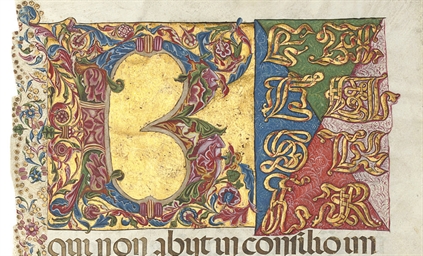 B EA
TV
SV
IR
qui non abyt in consilio im